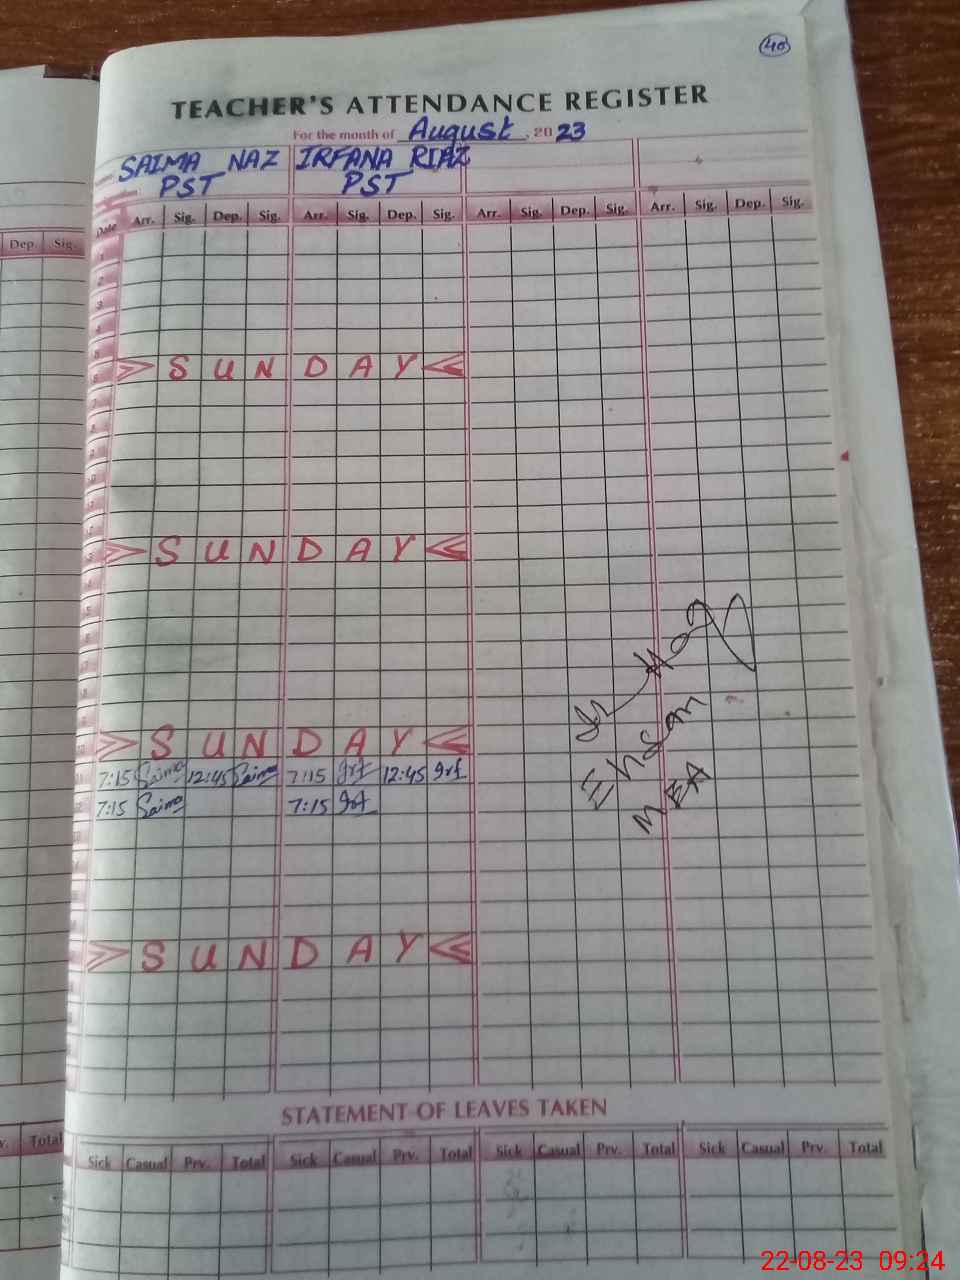 40
TEACHER'S ATTENDANCE REGISTER
For the month of August, 2023
SAIMA NAZ IRFANA RIAZ
PST PST
Date Arr. Sig. Dep. Sig. Arr. Sig. Dep. Sig. Arr. Sig. Dep. Sig. Arr. Sig. Dep. Sig.
Dep Sig.
SUNDAY
SUNDAY
SUNDAY
7:15 Saima 12:45 Saima 7:15 Irf 12:45 Irf
7:15 Saima 7:15 Irf
MEA
SUNDAY
STATEMENT OF LEAVES TAKEN
Total
Sick Casual Prv. Total Sick Casual Prv. Total Sick Casual Prv. Total Sick Casual Prv. Total
22-08-23 09:24